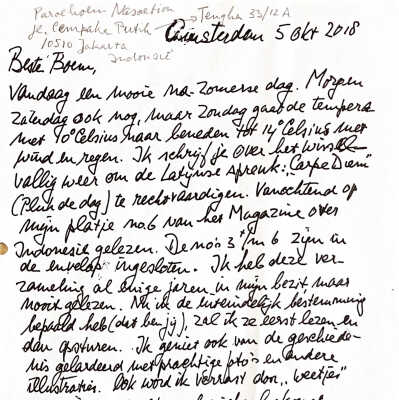 Paroehoem Nasoetion → Tengha 33/12A
Je. Cempaka Putih
10510 Jakarta
Indonesië
Amsterdam 5 Okt 2018
Beste Boem,
Vandaag een mooie na-zomerse dag. Morgen
zaterdag ook nog, maar zondag gaat de tempera
met 10° Celsius naar beneden tot 14° Celsius met
wind en regen. Ik schrijf je over het wissel-
vallig weer om de Latijnse spreuk: "Carpe Diem"
(Pluk de dag) te rechtvaardigen. Vanochtend op
mijn plaatje no. 6 van het Magazine over
Indonesië gelezen. De no's 3 t/m 6 zijn in
de envelop ingesloten. Ik heb deze ver-
zameling al enige jaren in mijn bezit maar
nooit gelezen. Nu ik de uiteindelijk bestemming
bepaald heb (dat ben jij), zal ik ze eerst lezen en
dan opsturen. Ik geniet ook van de geschiede-
nis gelardeerd met prachtige foto's en andere
illustraties. Ook word ik verrast door "weetjes"